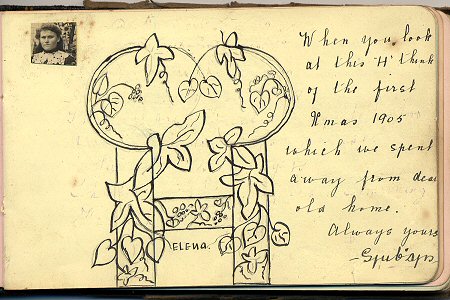 ELENA.
When you look
at this "H" think
of the first
Xmas 1905
which we spent
away from dear
old home.
Always yours